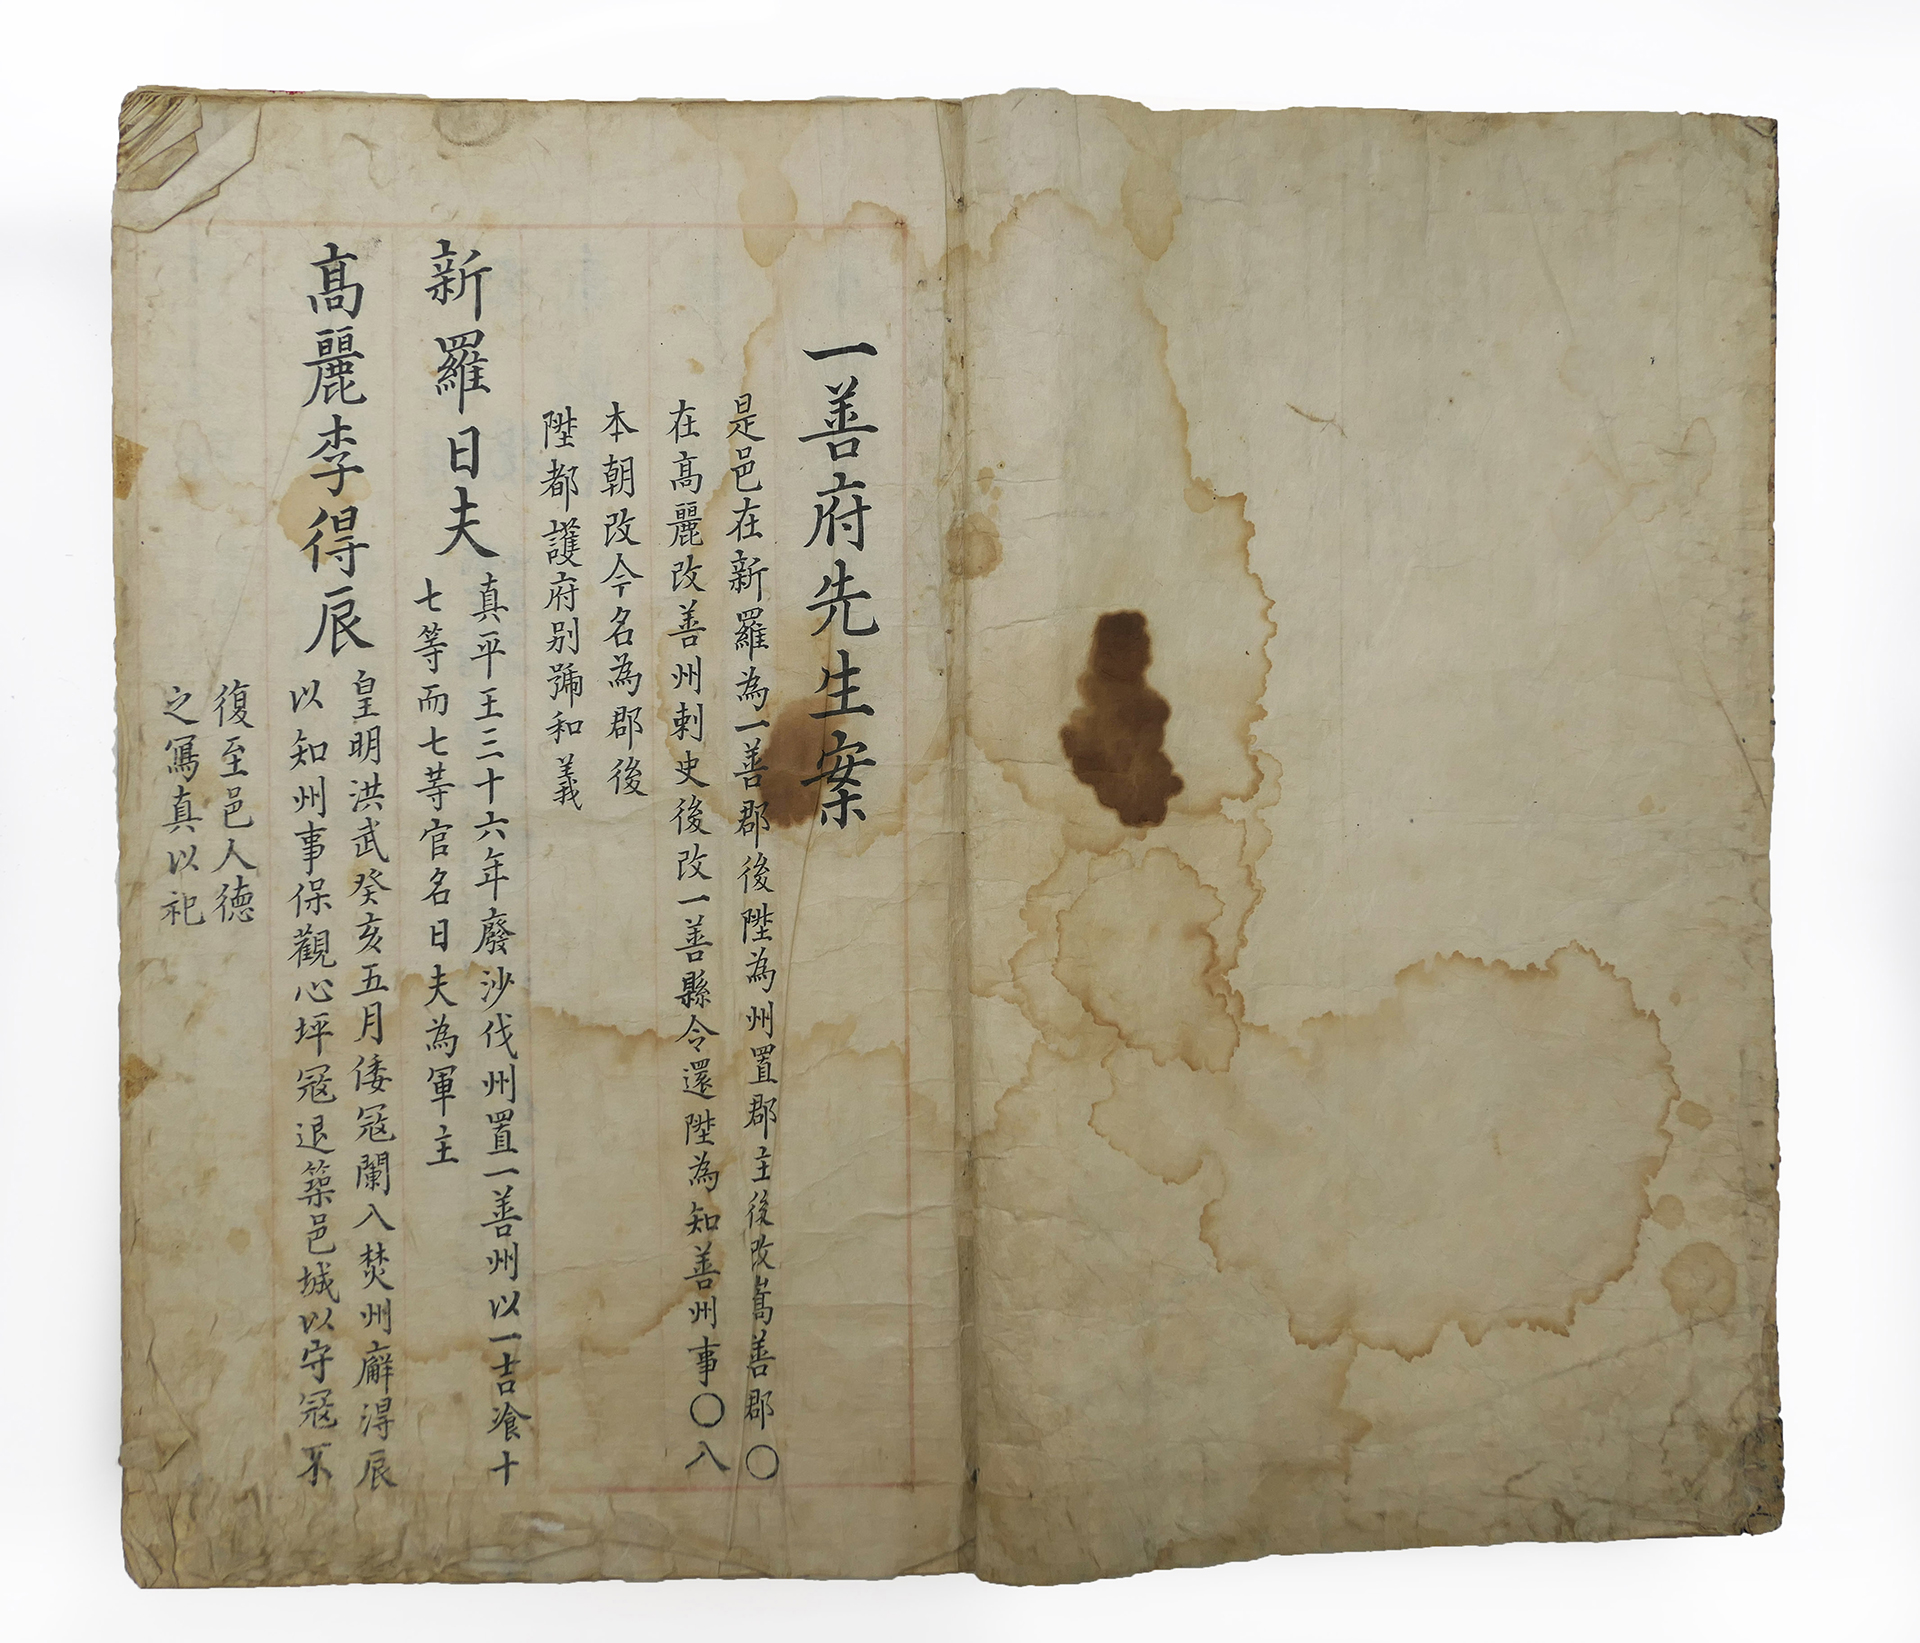 一善府先生案
是邑在新羅為一善郡後陞為州置郡主後改嵩善郡〇
在高麗改善州刺史後改一善縣令還陞為知善州事〇入
本朝改今名為郡後
陞都護府别號和義
新羅日夫
真平王三十六年廢沙伐州置一善州以一吉飡十
七等而七等官名日夫為軍主
高麗李得辰
皇明洪武癸亥五月倭冦闌入焚州廨淂辰
以知州事保觀心坪冦退築邑城以守冦不
復至邑人德
之寫真以祀